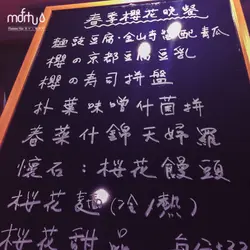 mdrnty
春季櫻花晚餐
麵豉豆腐·金山寺 配青瓜
櫻の京都豆腐豆乳
櫻の寿司拼盤
朴葉味噌什菌拼
春菜什錦天婦羅
懷石：桜花饅頭
桜花麵(冷/熱)
桜花甜品